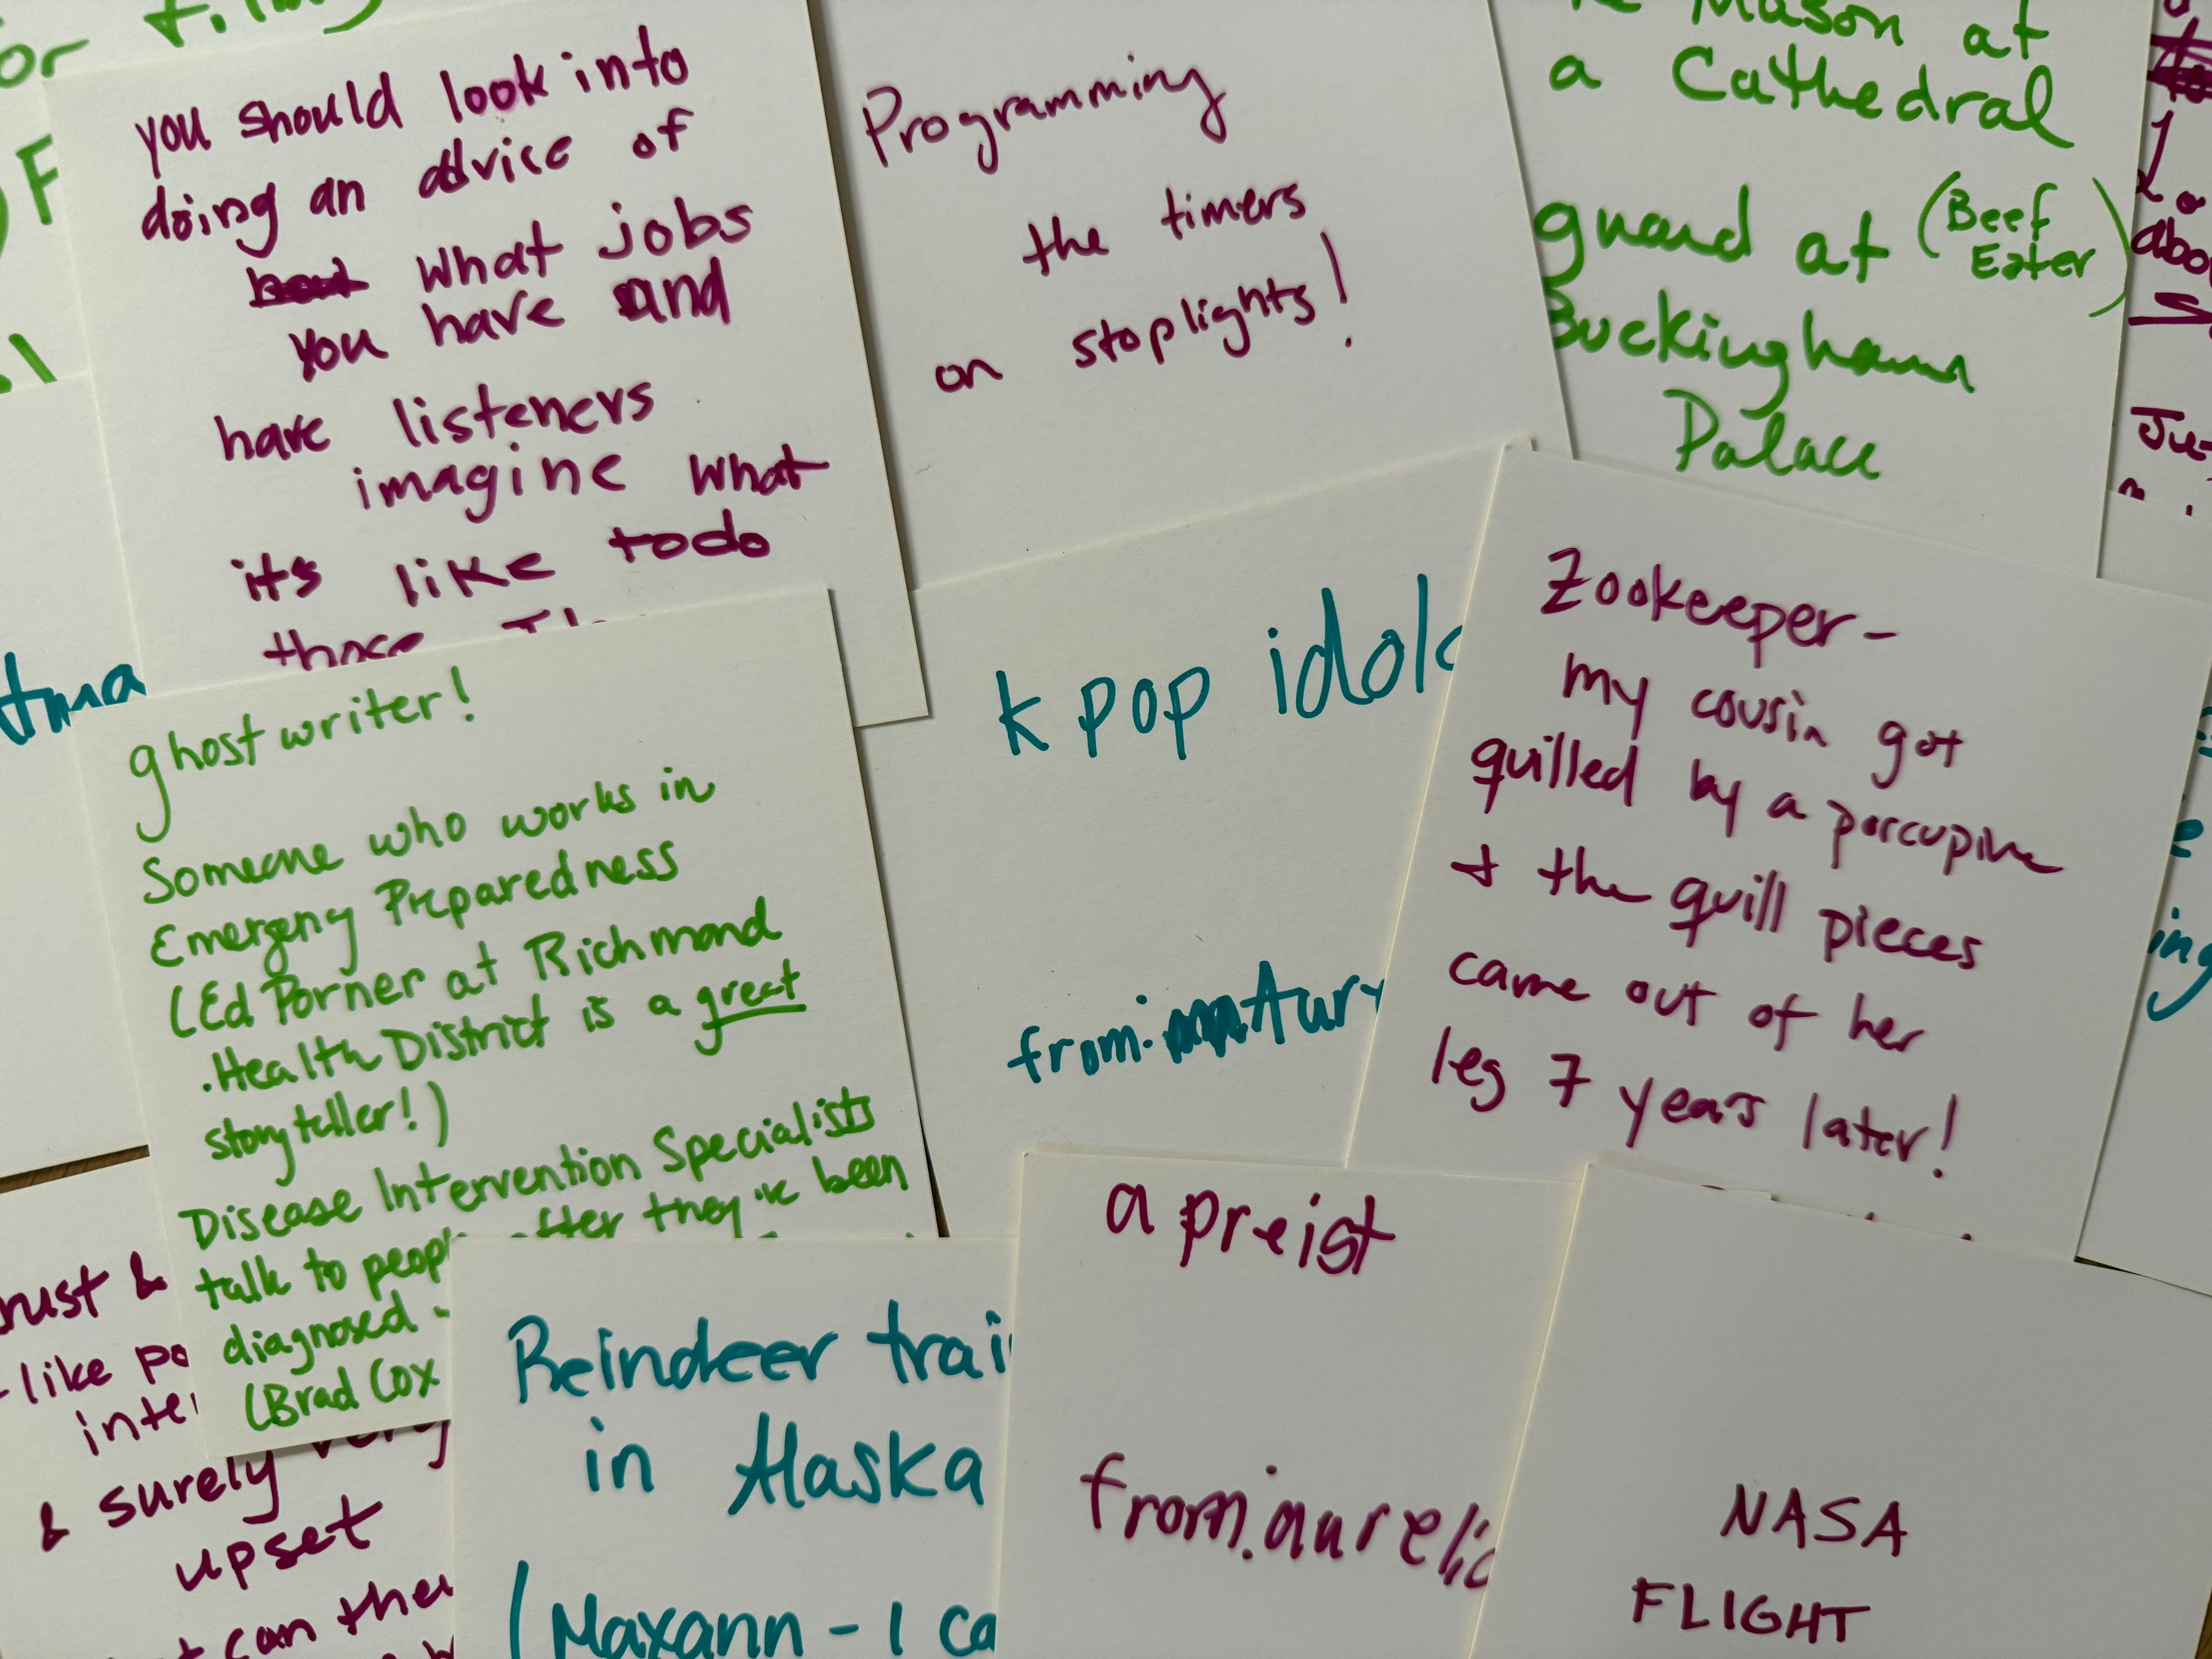 or
you should look into
doing an advice of
what jobs
you have and
have listeners
imagine what
its like todo
those
Programming
the timers
on stoplights!
Mason at
a Cathedral
guard at (Beef
Eater)
Buckingham
Palace
ghost writer!
Someone who works in
Emergeny Preparedness
(Ed Porner at Richmond
Health District is a great
storyteller!)
Disease Intervention Specialists
talk to people after they've been
diagnosed -
(Brad Cox
k pop idols
from:
Zookeeper-
my cousin got
quilled by a porcupine
+ the quill pieces
came out of her
leg 7 years later!
&
like
& surely very
upset
can
Reindeer
in Alaska
(Maxann - I
a preist
from:
NASA
FLIGHT